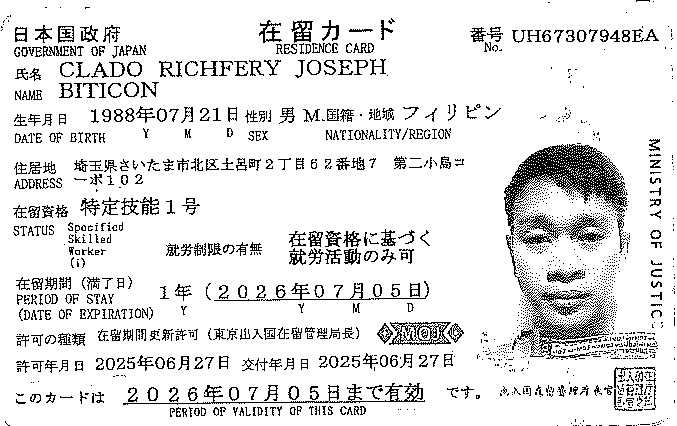 日本国政府 在留カード 番号 UH67307948EA
GOVERNMENT OF JAPAN RESIDENCE CARD No.
氏名 CLADO RICHFERY JOSEPH
NAME BITICON
生年月日 1988年07月21日 性別 男 M. 国籍・地域 フィリピン
DATE OF BIRTH Y M D SEX NATIONALITY/REGION
住居地 埼玉県さいたま市北区土呂町2丁目62番地7 第二小島コ
ADDRESS ーポ102
在留資格 特定技能1号
STATUS Specified
Skilled
Worker
(i)
就労制限の有無 在留資格に基づく
就労活動のみ可
在留期間(満了日) 1年(2026年07月05日)
PERIOD OF STAY
(DATE OF EXPIRATION) Y Y M D
許可の種類 在留期間更新許可(東京出入国在留管理局長) MOJ
許可年月日 2025年06月27日 交付年月日 2025年06月27日
このカードは 2026年07月05日まで有効 です。
PERIOD OF VALIDITY OF THIS CARD
出入国在留管理庁長官
MINISTRY OF JUSTICE